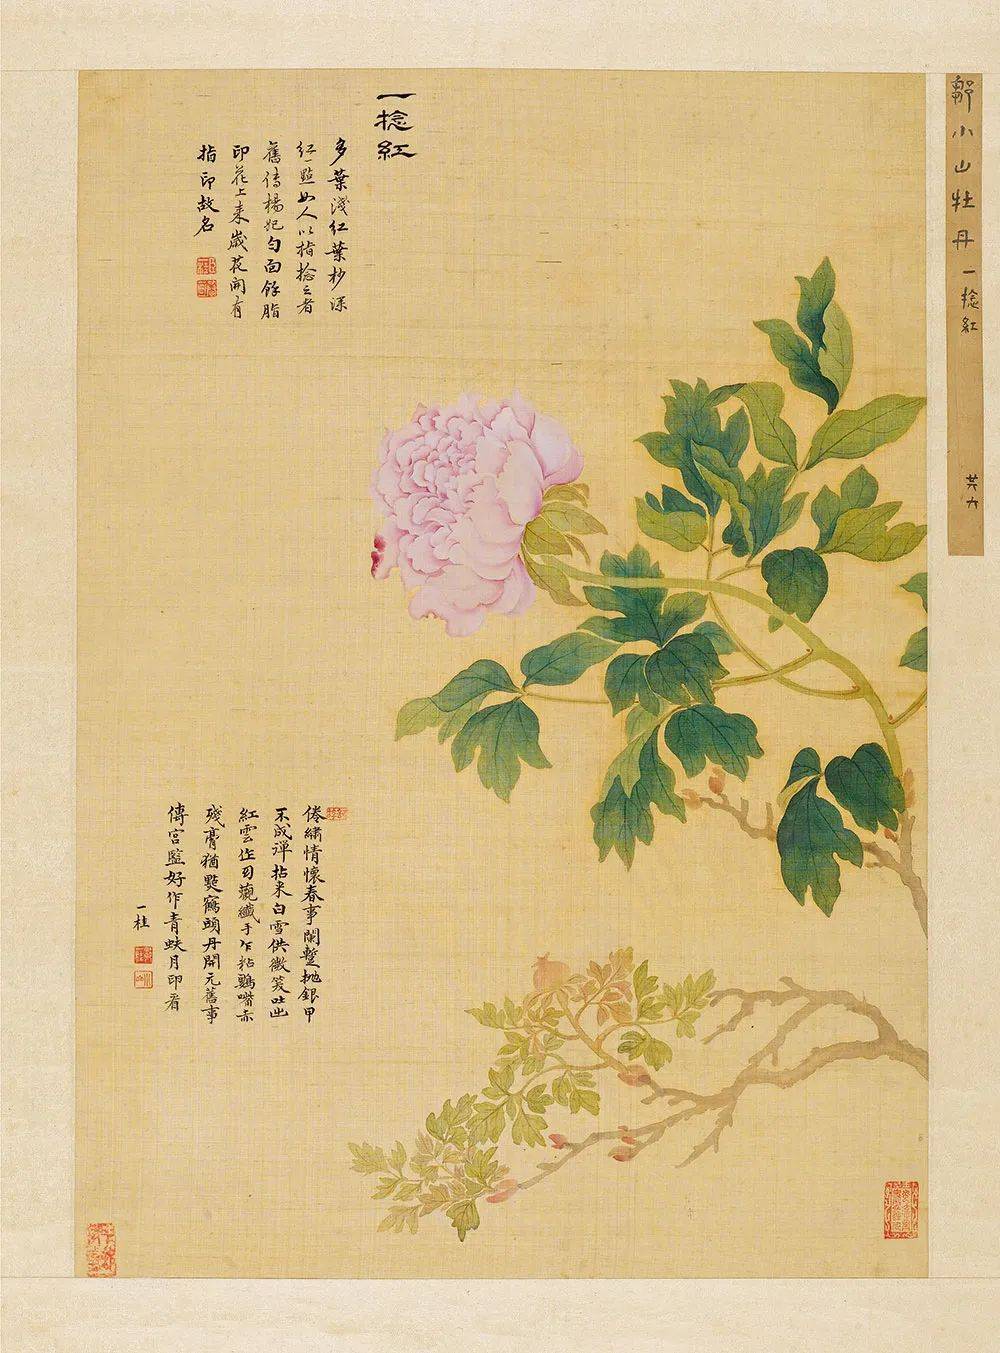 鄒小山牡丹 一捻紅
六
一捻紅
多葉淺紅葉杪深
紅一點如人以指捻之者
舊傳楊妃勻面餘脂
印花上来歲花開有
指印故名
倦繡情懷春事闌蹔抛銀甲
不成彈拈来白雪供微笑吐出
紅雲作觀纖手乍粘鸚嘴赤
殘膏猶點鶴頭丹開元舊事
傳宮監好作青蚨月印看
一桂